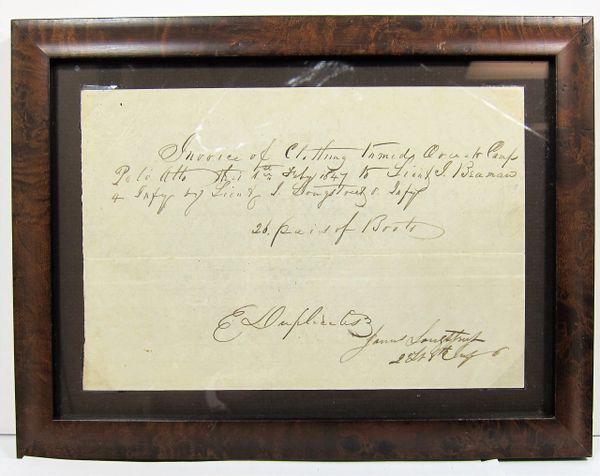 Invoice of Clothing turned Over at Camp
Palo Alto this 4th Feby 1847 to Lieut J. Beaman
4 Infy by Lieut J. Longstreet 8. Infy
26. pairs of Boots
Duplicates
James Longstreet
2 Lt 8th Infy